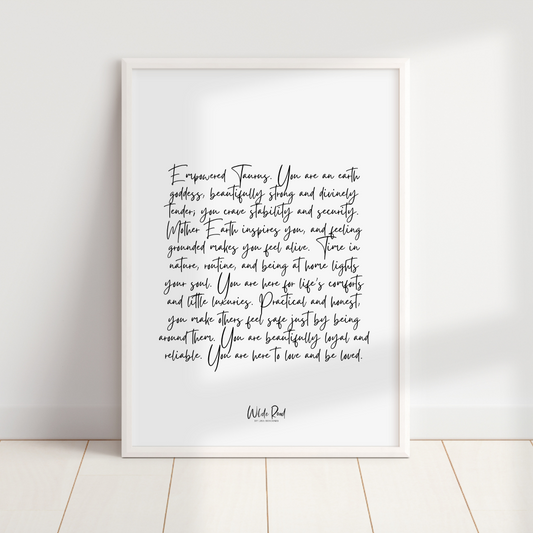 Empowered Taurus. You are an earth
goddess, beautifully strong and divinely
tender; you crave stability and security.
Mother Earth inspires you, and feeling
grounded makes you feel alive. Time in
nature, routine, and being at home lights
your soul. You are here for life's comforts
and little luxuries. Practical and honest,
you make others feel safe just by being
around them. You are beautifully loyal and
reliable. You are here to love and be loved.
Wilde Road